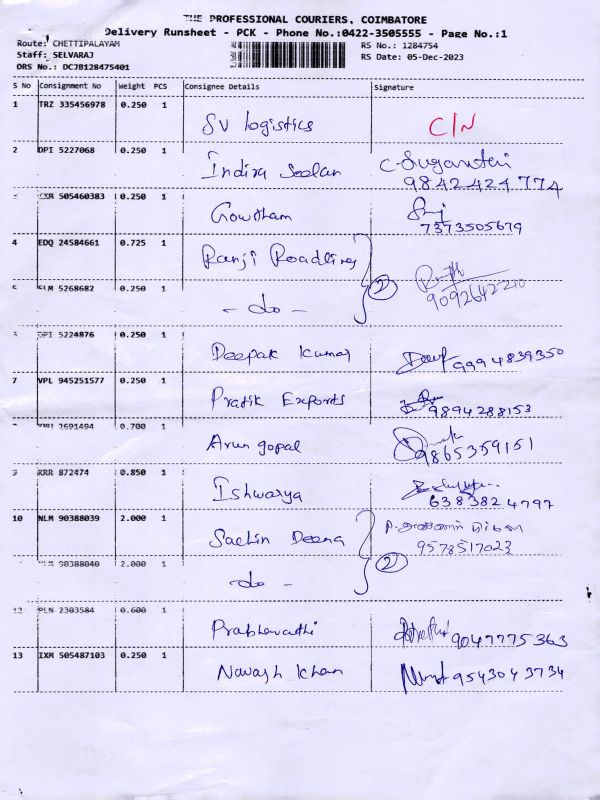 THE PROFESSIONAL COURIERS, COIMBATORE
Delivery Runsheet - PCK - Phone No.:0422-3505555 - Page No.:1
Route: CHETTIPALAYAM
RS No.: 1284754
Staff: SELVARAJ
RS Date: 05-Dec-2023
DRS No.: DCJB128475401
S No Consignment No Weight PCS Consignee Details Signature
1 TRZ 335456978 0.250 1
SV logistics C/N
2 DPI 5227068 0.250 1
Indira Seelan
9842424774
IXM 505460383 0.250 1
Gowtham
7373505679
4 EDQ 24584661 0.725 1
Ranji Roadlines
5 SLM 5268682 0.250 1
- do - 2 9092642240
DPI 5224876 0.250 1
Deepak Kumar 9994839350
7 VPL 945251577 0.250 1
Pratik Exports 9894288153
2691494 0.700 1
Arun gopal 9865359151
9 KRR 872474 0.850 1
Ishwarya
6383824797
10 NLM 90388039 2.000 1
Sachin Deena
9578517023
NLM 90388040 2.000 1
- do - 2
12 PLN 2303584 0.600 1
Prabhavathi 9047775363
13 IXM 505487103 0.250 1
Nawash Khan 9543043734